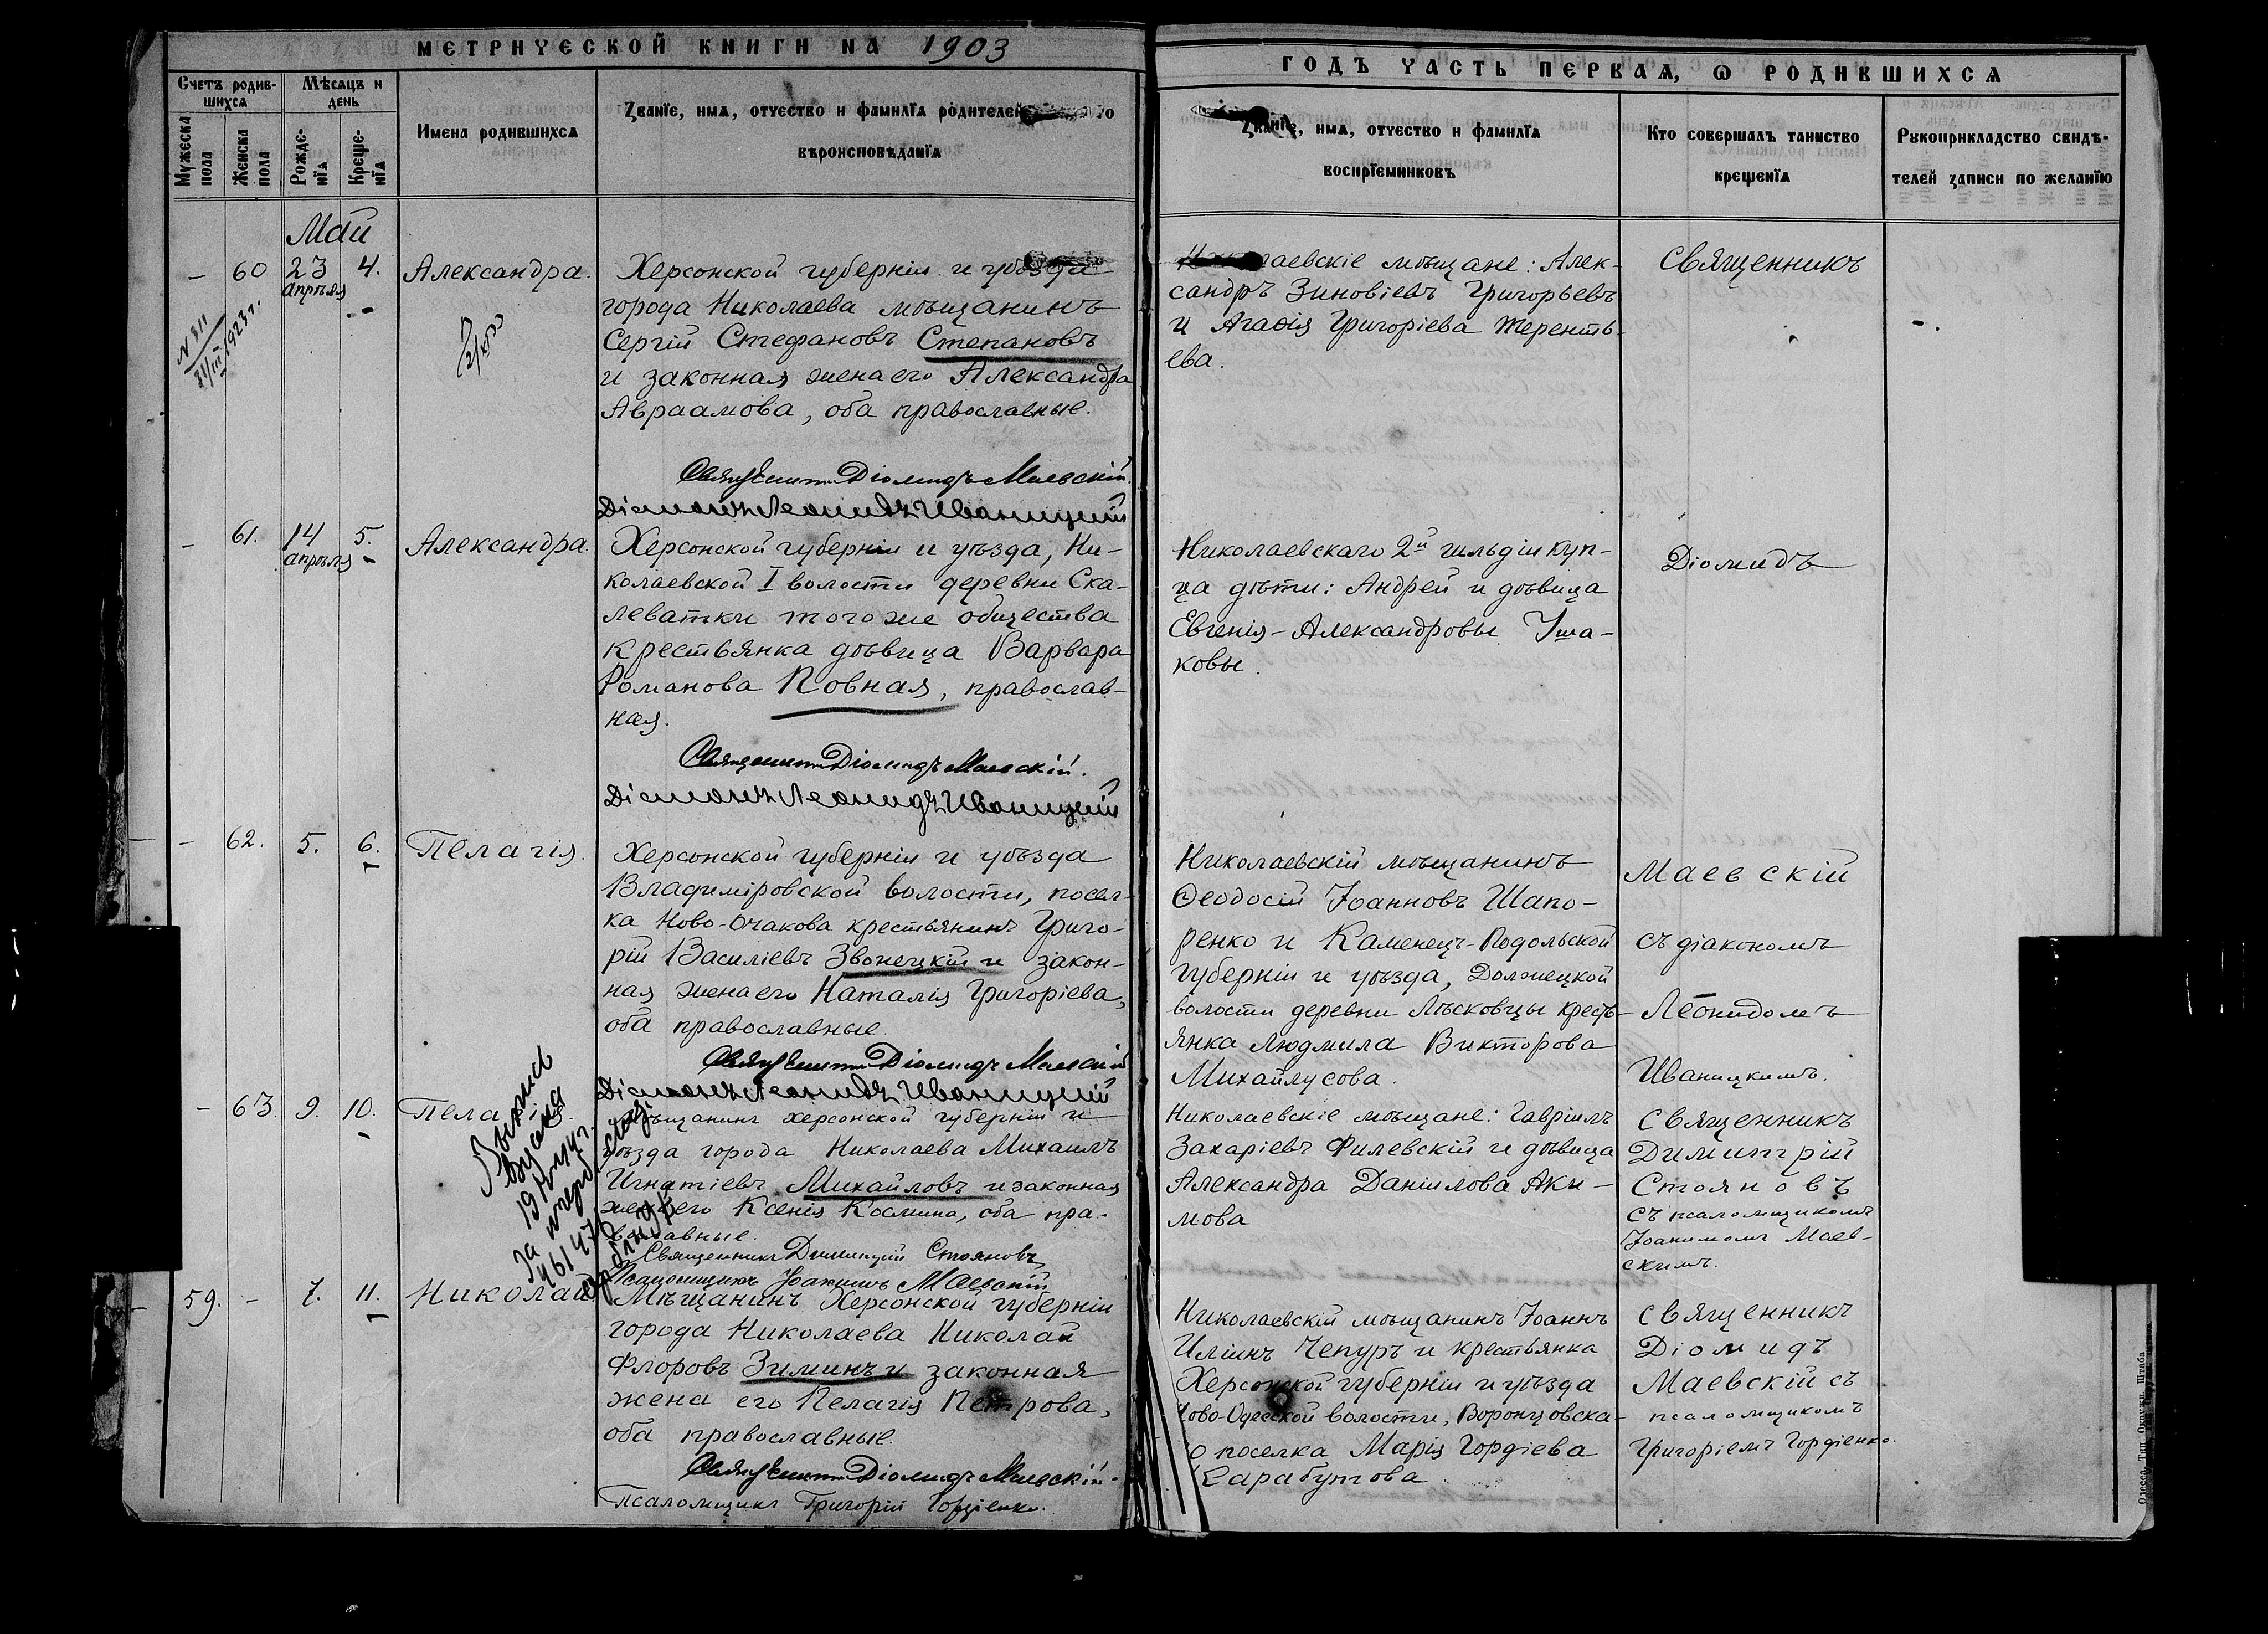 МЕТРИЧЕСКОЙ КНИГИ НА 1903
Счетъ родив-
шихся
Мѣсяцъ и
день
Мужеска
пола
Женска
пола
Рожде-
нія
Креще-
нія
Имена родившихся
Званіе, имя, отчество и фамилія родителей
вѣроисповѣданія
Май
– 60 23 4. Александра.
апрѣля
Херсонской губерніи и уѣзда
города Николаева мѣщанинъ
Сергій Стефановъ Степановъ
и законная жена его Александра
Авраамова, оба православные.
Священникъ Діомидъ Маевскій.
Діаконъ Леонидъ Иваницкій
– 61. 14 5. Александра.
апрѣля
Херсонской губерніи и уѣзда, Ни-
колаевской I волости деревни Ска-
леватки того же общества
крестьянка дѣвица Варвара
Романова Повная, православ-
ная.
Священникъ Діомидъ Маевскій.
Діаконъ Леонидъ Иваницкій
– 62. 5. 6. Пелагія.
Херсонской губерніи и уѣзда
Владиміровской волости, посел-
ка Ново-Очакова крестьянинъ Григо-
рій Василіевъ Звонецкій и закон-
ная жена его Наталія Григоріева,
оба православные.
Священникъ Діомидъ Маевскій
Діаконъ Леонидъ Иваницкій
– 63. 9. 10. Пелагія.
Мѣщанинъ Херсонской губерніи и
уѣзда города Николаева Михаилъ
Игнатіевъ Михайловъ и законная
жена его Ксенія Космина, оба пра-
вославные.
Священникъ Димитрій Стояновъ
Псаломщикъ Іоакимъ Маевскій
59. – 7. 11. Николай
Мѣщанинъ Херсонской губерніи
города Николаева Николай
Флоровъ Зиминъ и законная
жена его Пелагія Петрова,
оба православные.
Священникъ Діомидъ Маевскій.
Псаломщикъ Григорій Гордіенко.
ГОДЪ ЧАСТЬ ПЕРВАЯ, Ѡ РОДИВШИХСЯ
Званіе, имя, отчество и фамилія
воспріемниковъ
Кто совершалъ таинство
крещенія
Рукоприкладство свидѣ-
телей записи по желанію
Николаевскіе мѣщане: Алек-
сандръ Зиновіевъ Григорьевъ
и Агаѳія Григоріева Теренть-
ева.
Священникъ
Николаевскаго 2й гильдіи куп-
ца дѣти: Андрей и дѣвица
Евгенія-Александровы Уша-
ковы.
Діомидъ
Николаевскій мѣщанинъ
Ѳеодосій Іоанновъ Шапо-
ренко и Каменецъ-Подольской
губерніи и уѣзда, Должецкой
волости деревни Лѣсковцы кресть-
янка Людмила Викторова
Михайлусова.
Маевскій
съ діакономъ
Леонидомъ
Иваницкимъ.
Николаевскіе мѣщане: Гавріилъ
Захаріевъ Филевскій и дѣвица
Александра Даніилова Аки-
мова
Священникъ
Димитрій
Стояновъ
съ псаломщикомъ
Іоакимомъ Маев-
скимъ.
Николаевскій мѣщанинъ Іоаннъ
Иліинъ Чепуръ и крестьянка
Херсонской губерніи и уѣзда
Ново-Одесской волости, Воронцовска-
го поселка Марія Гордіева
Карабутова.
Священникъ
Діомидъ
Маевскій съ
псаломщикомъ
Григоріемъ Гордіенко.
Одесса, Тип. Окружн. Штаба